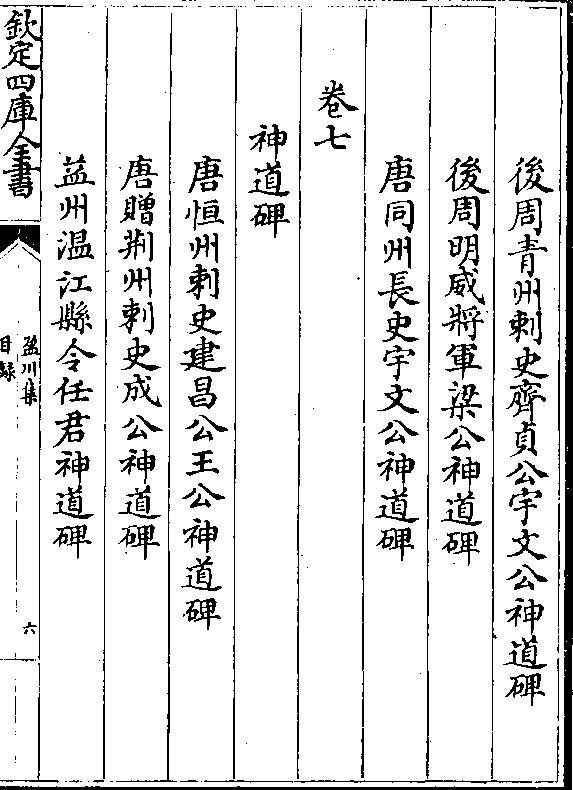 後周青州刺史齊貞公宇文公神道碑
後周明威將軍梁公神道碑
唐同州長史宇文公神道碑
卷七
神道碑
唐恒州刺史建昌公王公神道碑
唐贈荆州刺史成公神道碑
益州温江縣令任君神道碑
欽定四庫全書
盈川集
目錄
六